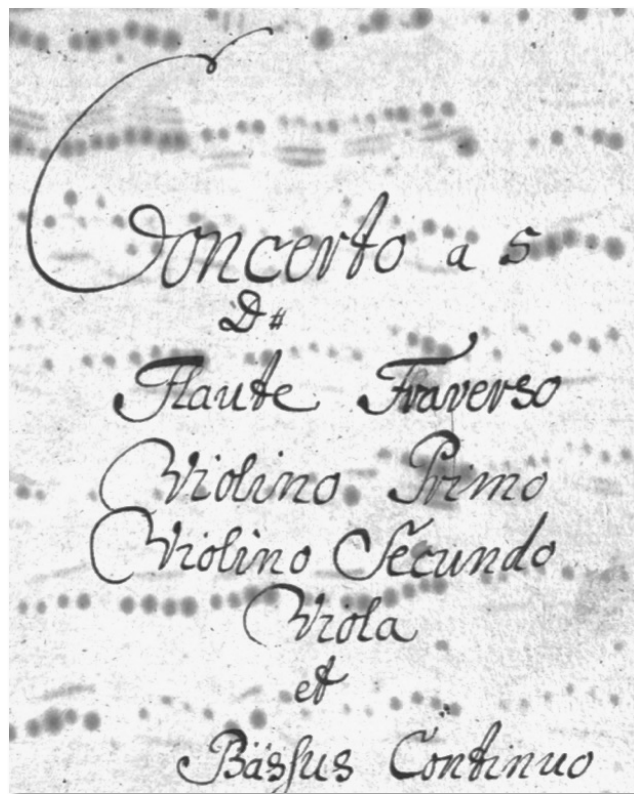 Concerto a 5
D#
Flaute Traverso
Violino Primo
Violino Secundo
Viola
et
Bassus Continuo